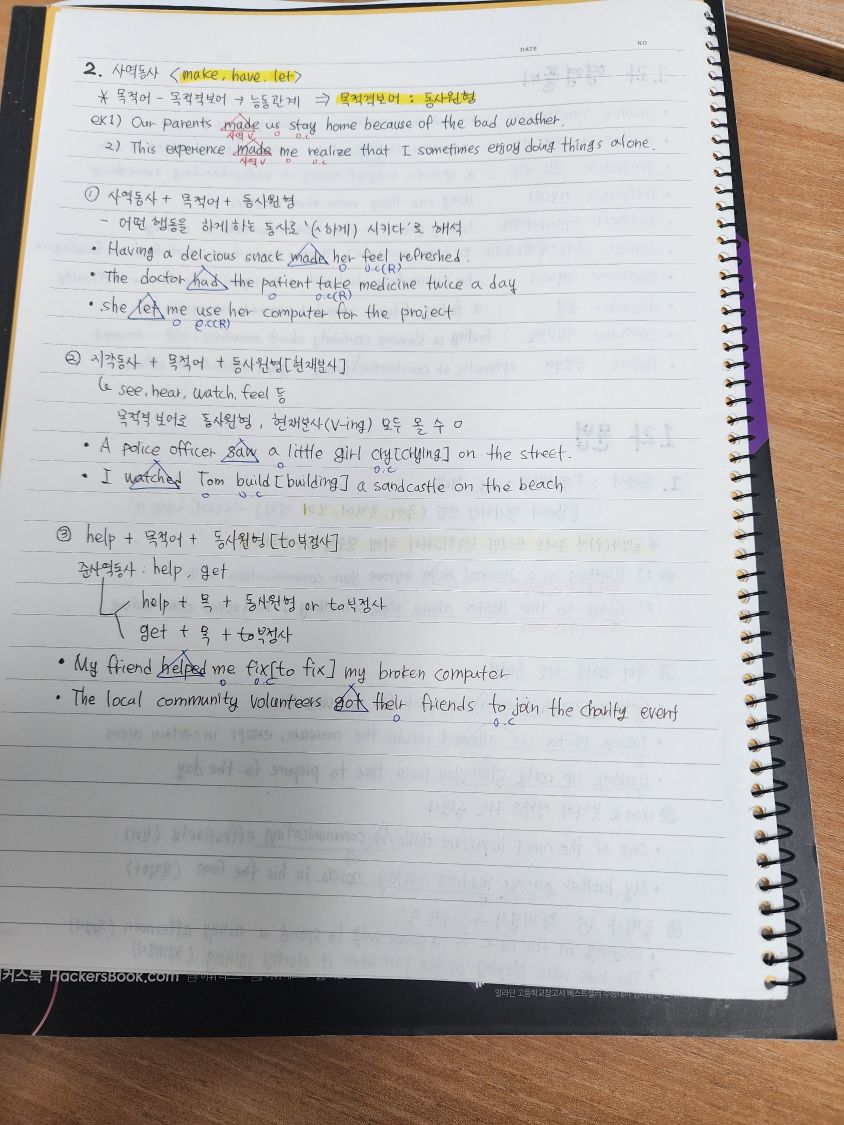 DATE NO
2. 사역동사 <make, have, let>
* 목적어 - 목적격보어 → 능동관계 ⇒ 목적격보어 : 동사원형
ex1) Our parents made us stay home because of the bad weather.
사역V o o.c
2) This experience made me realize that I sometimes enjoy doing things alone.
사역V o o.c
① 사역동사 + 목적어 + 동사원형
- 어떤 행동을 하게 하는 동사로 '(~하게) 시키다'로 해석
• Having a delicious snack made her feel refreshed.
o o.c(R)
• The doctor had the patient take medicine twice a day
o o.c(R)
• she let me use her computer for the project
o o.c(R)
② 지각동사 + 목적어 + 동사원형[현재분사]
↳ see, hear, watch, feel 등
목적격 보어로 동사원형, 현재분사(V-ing) 모두 올 수 o
• A police officer saw a little girl cry[crying] on the street.
o o.c
• I watched Tom build [building] a sandcastle on the beach
o o.c
③ help + 목적어 + 동사원형[to부정사]
준사역동사 : help, get
help + 목 + 동사원형 or to부정사
get + 목 + to부정사
• My friend helped me fix[to fix] my broken computer
o o.c
• The local community volunteers got their friends to join the charity event
o o.c
커스북 HackersBook.com